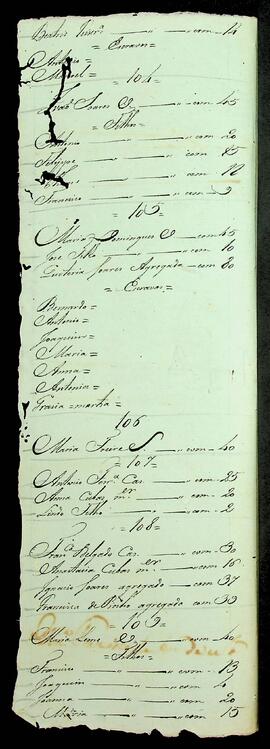 com - 14
= Escravos =
Antonio =
Manoel =
= 104 =
Soares V - com - 45
= Filhos =
Antonio - com - 20
Felippe - com - 15
- com - 12
Francisco - com - 9
= 105 =
Maria Domingues V - com - 45
José Filho - com - 16
Quiteria Soares Agregada - com - 80
= Escravos =
Bernardo =
Antonio =
Joaquim =
Maria =
Anna =
Antonia =
Gracia =
106
Maria Freire S - com - 40
= 107 =
Antonio Ferr.ª Cas. - com - 25
Anna Cubas m.er - com - 20
Lindo Filho - com - 2
= 108 =
Fran.co Delgado Cas. - com - 30
Anastacia Cubas m.er - com - 16
Ignacio Soares agregado - com - 37
Francisca de Pinho agregada - com - 39
= 109 =
Maria Leme V - com - 40
= Filhos =
Francisco - com - 13
Joaquim - com - 4
Joanna - com - 20
Maria - com - 15